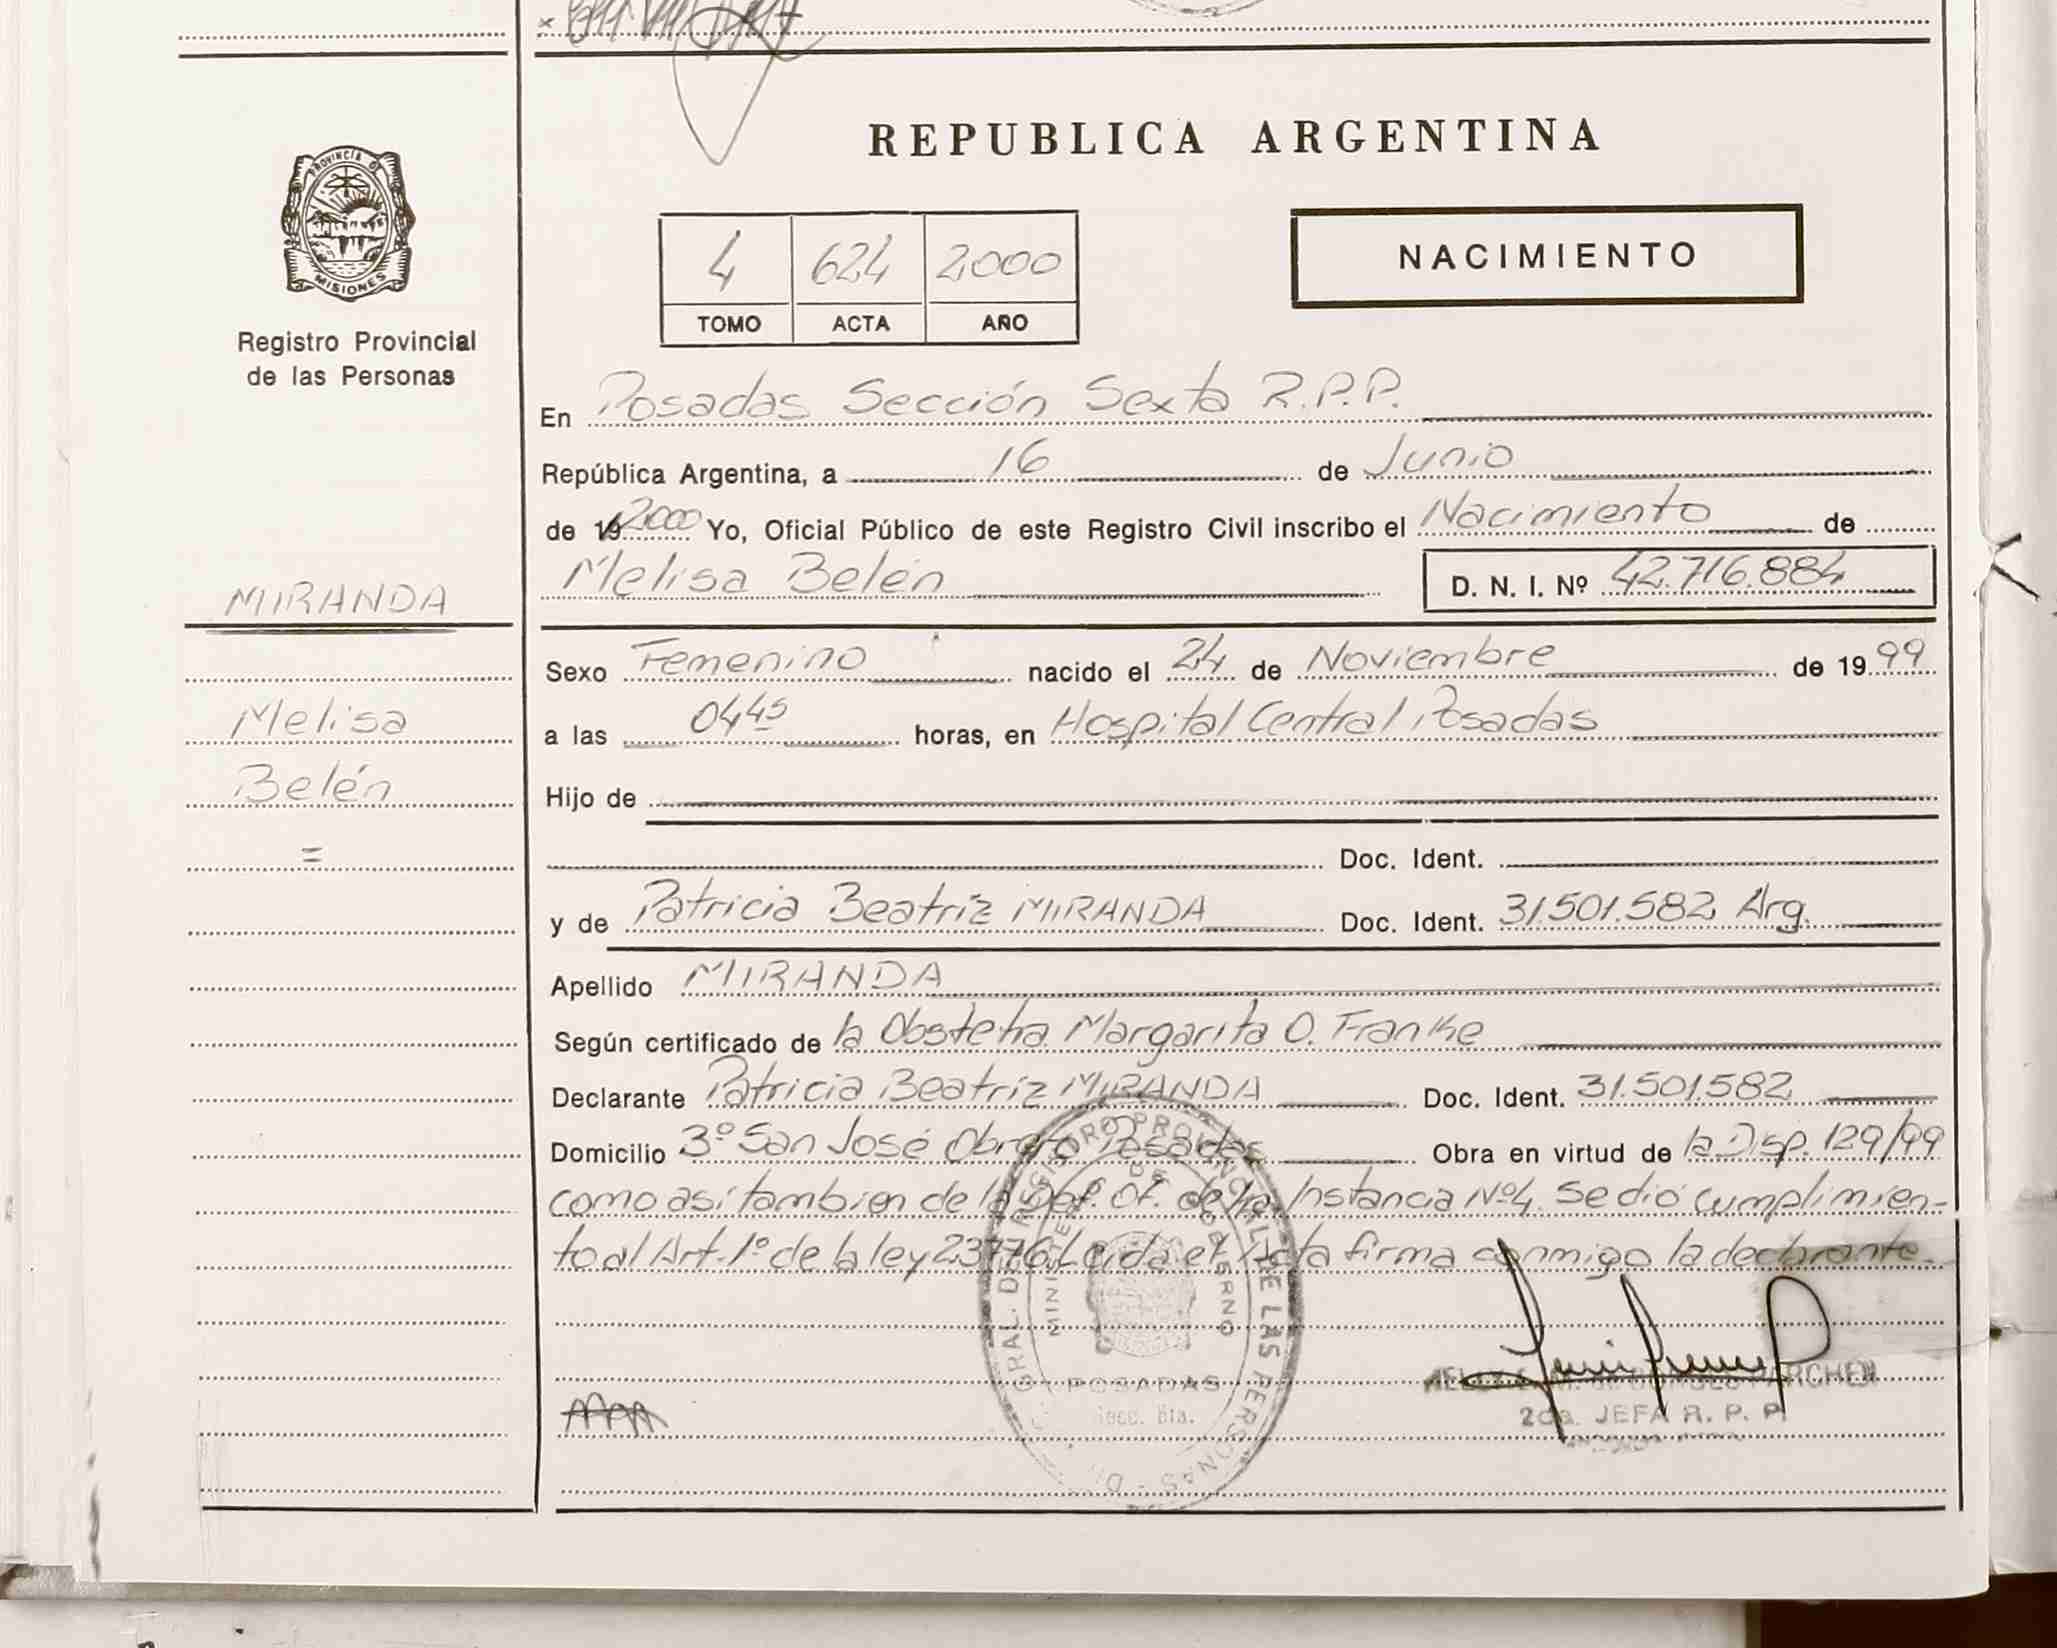 REPUBLICA ARGENTINA
PROVINCIA D
MISIONES
Registro Provincial
de las Personas
4 624 2000
TOMO ACTA AÑO
NACIMIENTO
En Posadas Sección Sexta R.P.P.
República Argentina, a 16 de Junio
de 19 2000 Yo, Oficial Público de este Registro Civil inscribo el Nacimiento de
Melisa Belén D. N. I. Nº 42.716.884
MIRANDA
Sexo Femenino nacido el 24 de Noviembre de 19 99
Melisa
a las 04 45 horas, en Hospital Central Posadas
Belén
Hijo de
=
Doc. Ident.
y de Patricia Beatríz MIRANDA Doc. Ident. 31.501.582 Arg.
Apellido MIRANDA
Según certificado de la Obstetra Margarita O. Franke
Declarante Patricia Beatríz MIRANDA Doc. Ident. 31.501.582
Domicilio 3º San José Obrero Posadas Obra en virtud de la Disp. 129/99
como así tambien de la Def. Of. de 1ra Instancia Nº4. Se dió cumplimien-
to al Art. 1º de la ley 23776. Leida el Acta firma conmigo la declarante.
GRAL. DEL REGISTRO PROVINCIAL DE LAS PERSONAS
MINISTERIO DE GOBIERNO
POSADAS
Secc. 6ta.
2da. JEFA R. P. P.